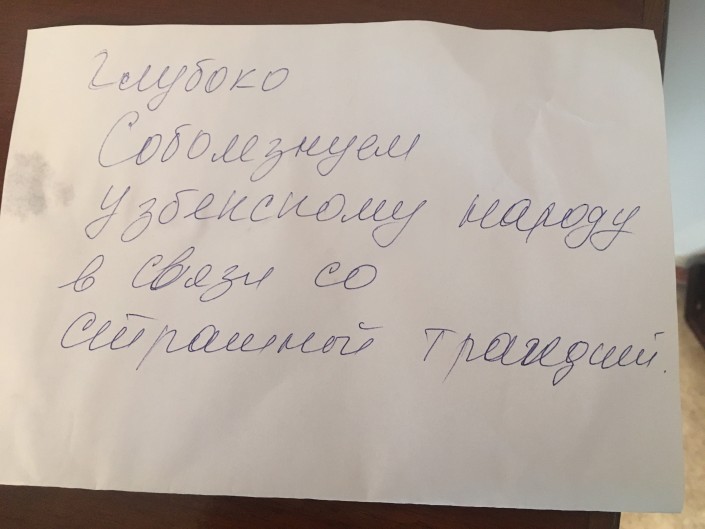 Глубоко
Соболезнуем
узбекскому народу
в связи со
страшной трагедией.